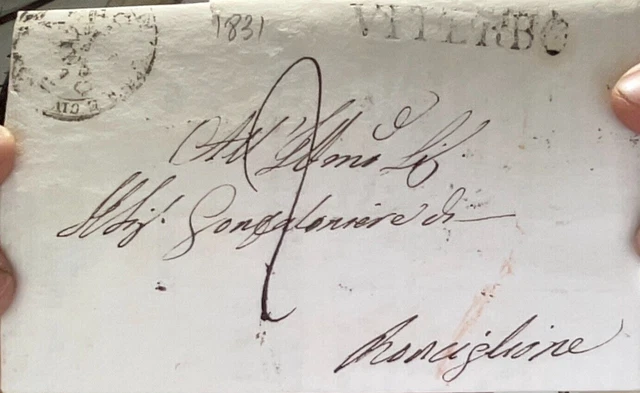 1831
VITERBO
E CIV
All' Illmo Sig.
Il Sig.r Gonfaloniere di
Ronciglione